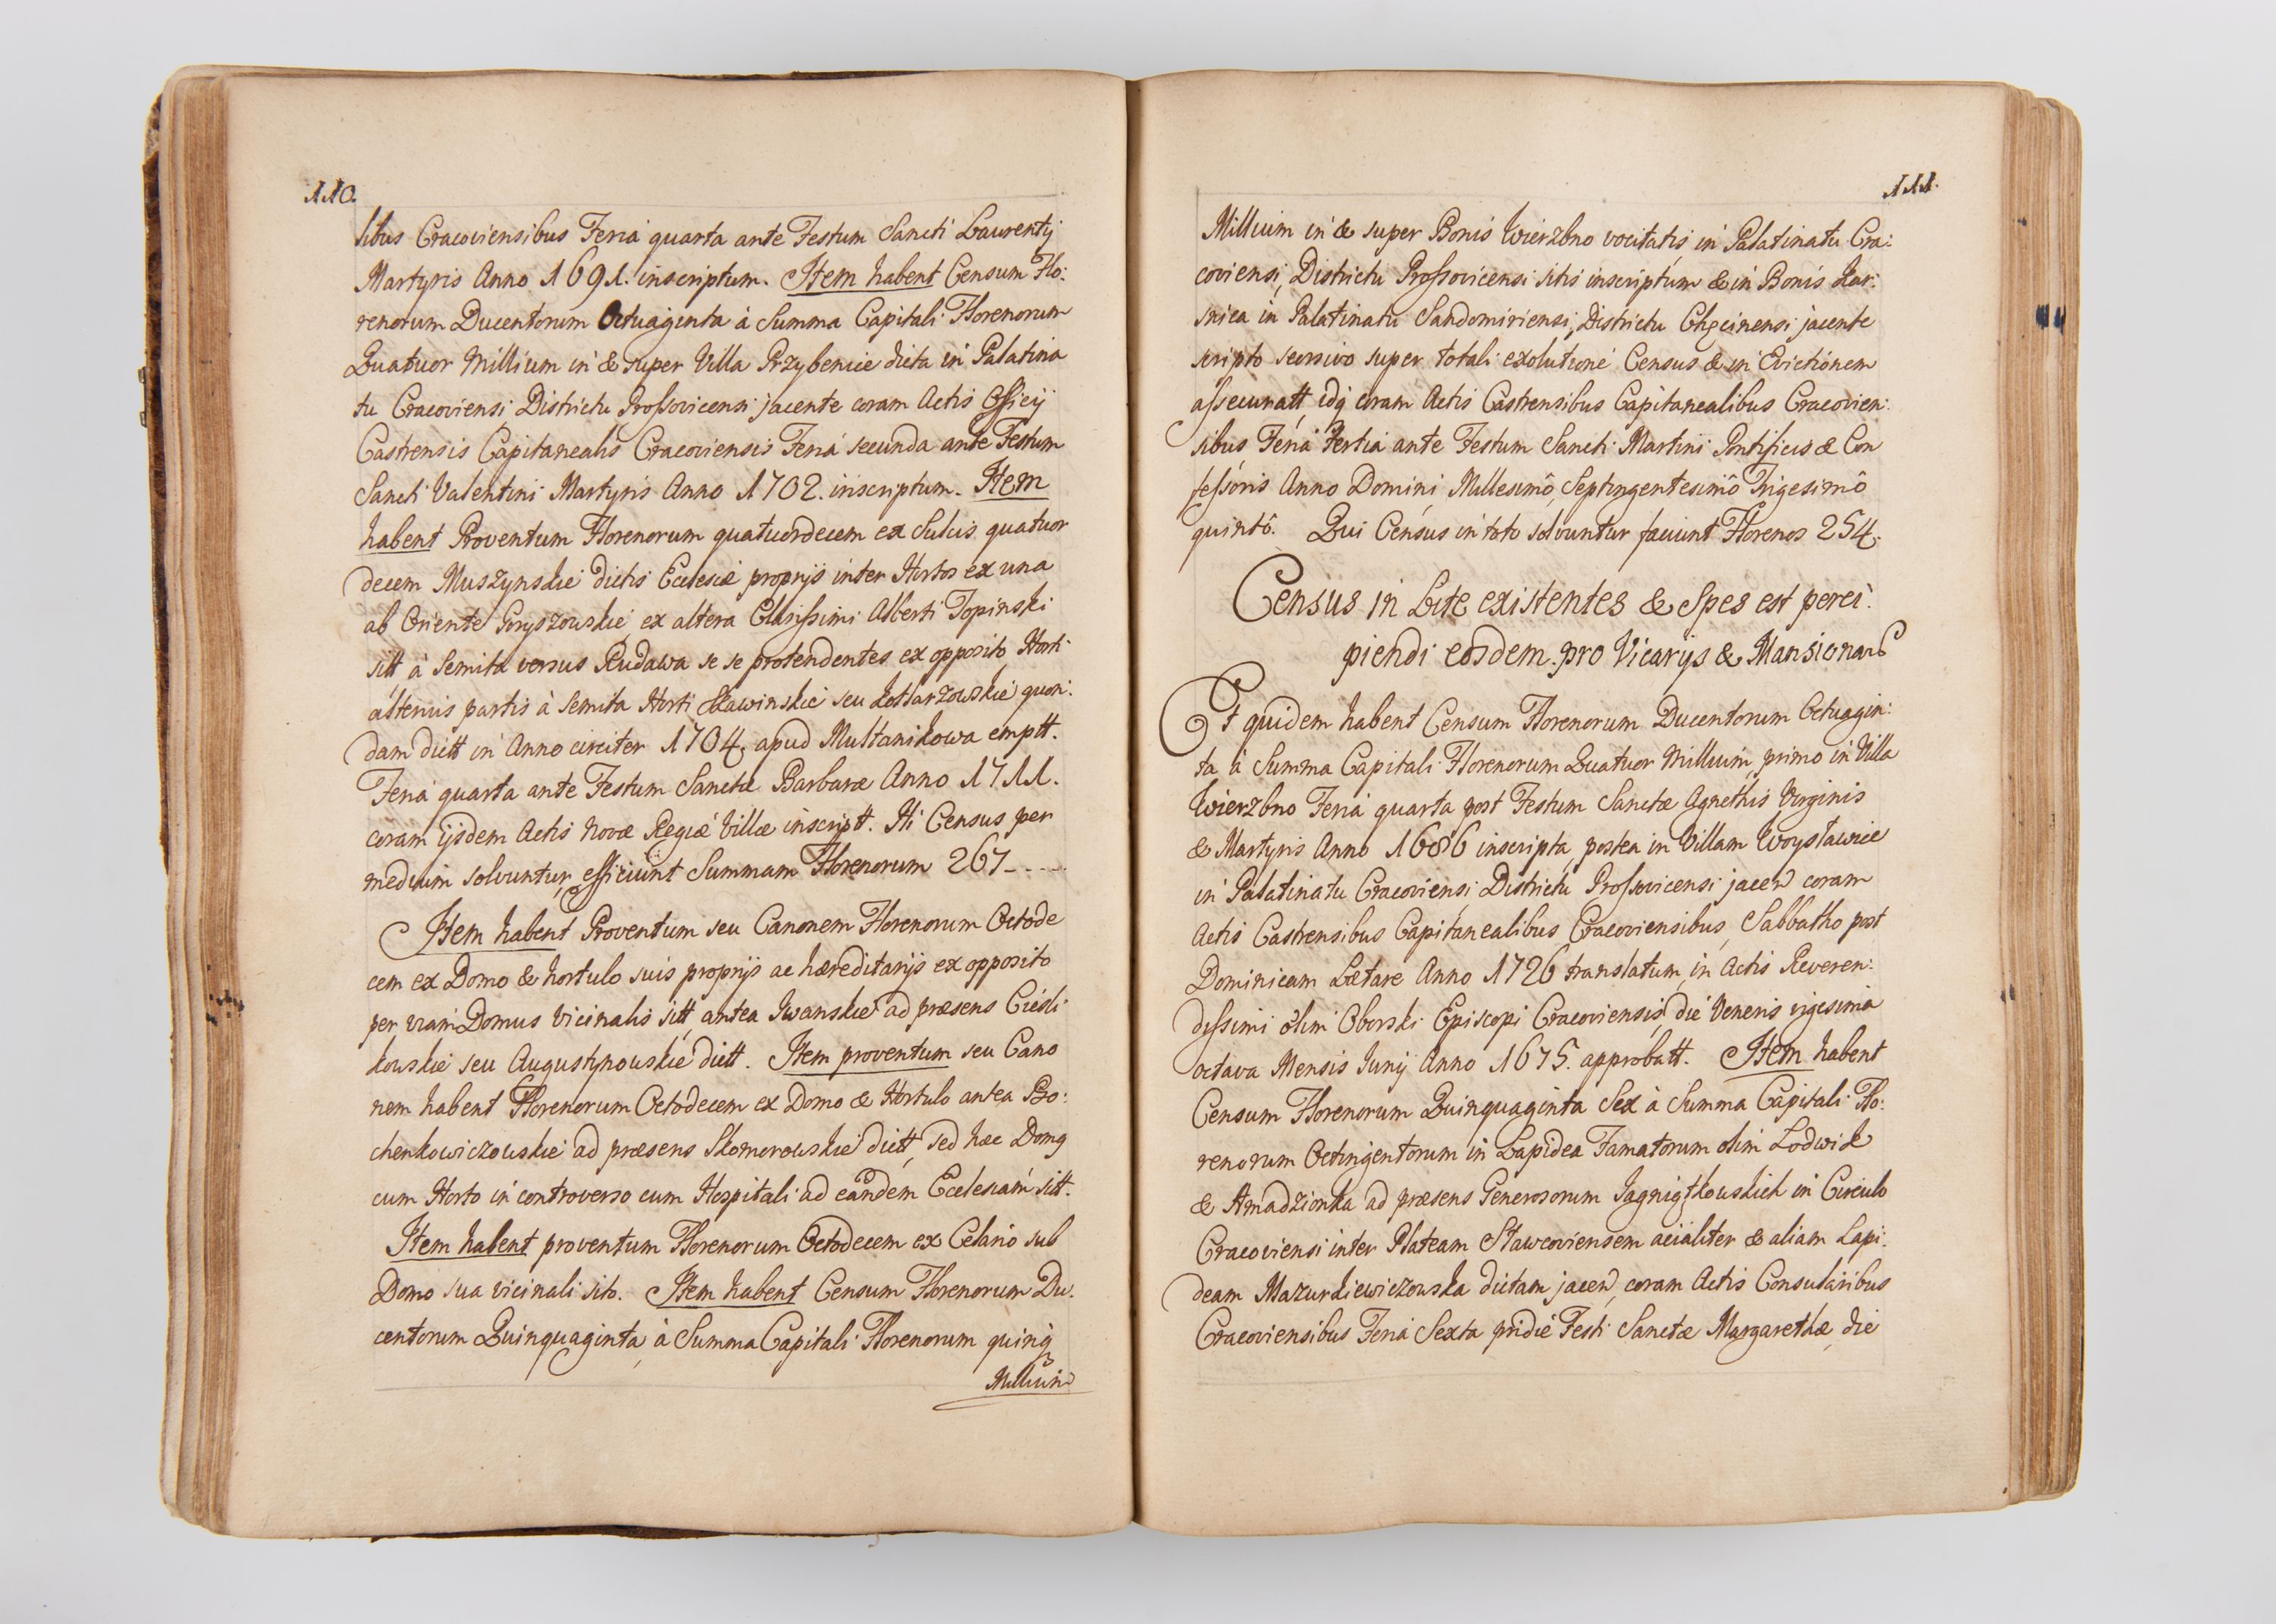 110.
sibus Cracoviensibus Feria quarta ante Festum Sancti Laurentij
Martyris Anno 1691. inscriptum. Item habent Censum Flo:
renorum Ducentorum Octuaginta à Summa Capitali Florenorum
Quatuor Millium in & super Villa Przybenice dicta in Palatina
tu Cracoviensi Districtu Prossovicensi jacente coram Actis Officij
Castrensis Capitanealis Cracoviensis Feria secunda ante Festum
Sancti Valentini Martyris Anno 1702. inscriptum. Item
habent Proventum Florenorum quatuordecem ex Sulcis quatuor
decem Muszynskie dictis Ecclesiæ proprijs inter Hortos ex una
ab Oriente Goryszowskie, ex altera Clarissimi Alberti Topinski
sitt à Semita versus Rudawa se se protendentes ex opposito Horti
alterius partis à Semita Horti Skawinskie seu Kotlarzowskie quon:
dam dictt in Anno circiter 1704. apud Multanikowa emptt.
Feria quarta ante Festum Sanctæ Barbaræ Anno 1711.
coram ijsdem Actis Novæ Regiæ Villæ inscriptt. Hi Census per
medium solvuntur, efficiunt Summam Florenorum 267 - - - -
Item habent Proventum seu Canonem Florenorum Octode
cem ex Domo & hortulo suis proprijs ac hæreditarijs ex opposito
per viam Domus Vicinalis sitt, antea Iwanskie ad præsens Ciesli
kowskie seu Augustynowskie dictt. Item proventum seu Cano
nem habent Florenorum Octodecem ex Domo & Hortulo antea Bo:
chenkowiczowskie ad præsens Skomorowskie dictt, sed hæc Domq
cum Horto in controverso cum Hospitali ad eandem Ecclesiam sitt.
Item habent proventum Florenorum Octodecem ex Celario sub
Domo sua vicinali sito. Item habent Censum Florenorum Du:
centorum Quinquaginta, à Summa Capitali Florenorum quinq
Millium
111.
Millium in & super Bonis Wierzbno vocitatis, in Palatinatu Cra:
coviensi, Districtu Prossovicensi sitis inscriptum & in Bonis Kar:
snica in Palatinatu Sandomiriensi, Districtu Chęcinensi jacente
scripto seorsivo super totali exolutione Census & in Evictionem
assecuratt, idq coram Actis Castrensibus Capitanealibus Cracovien:
sibus Feria Tertia ante Festum Sancti Martini Pontificis & Con
fessoris Anno Domini Millesimô, Septingentesimô Trigesimô
quintô. Qui Census in toto solvuntur faciunt Florenos 254.
Census in Lite existentes & Spes est perci:
piendi eosdem pro Vicarijs & Mansionar
Et quidem habent Censum Florenorum Ducentorum Octuagin:
ta à Summa Capitali Florenorum Quatuor Millium, primo in Villa
Wierzbno Feria quarta post Festum Sanctæ Agnethis Virginis
& Martyris Anno 1686 inscripta, postea in Villam Woysławice
in Palatinatu Cracoviensi, Districtu Prossovicensi jacen coram
Actis Castrensibus Capitanealibus Cracoviensibus, Sabbatho post
Dominicam Lætare Anno 1726 translatum, in Actis Reveren:
dissimi olim Oborski Episcopi Cracoviensis, die Veneris vigesima
octava Mensis Junij Anno 1675. approbatt. Item habent
Censum Florenorum Quinquaginta Sex à Summa Capitali Flo:
renorum Octingentorum in Lapidea Famatorum olim Lodwik
& Amadzionka ad præsens Generosorum Jagnigtkowskich in Circulo
Cracoviensi inter Plateam Stawcoviensem acialiter & aliam Lapi:
deam Mazurkiewiczowska dictam jacen, coram Actis Consularibus
Cracoviensibus Feria Sexta pridie Festi Sanctæ Margarethæ, die